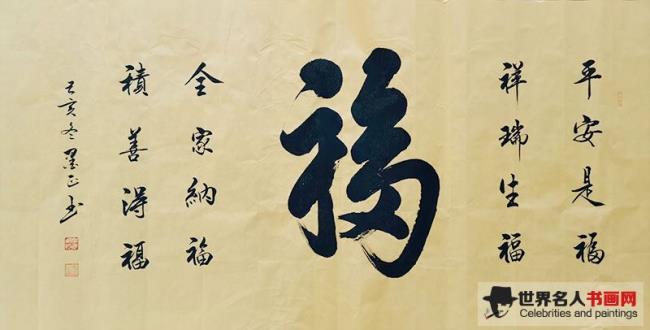 平安是福
祥瑞生福
福
全家納福
積善得福
己亥冬墨正书
世界名人书画网
Celebrities and paintings